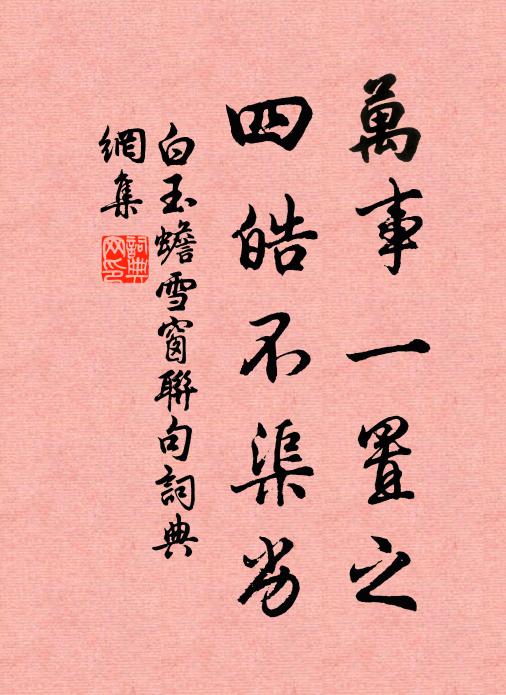 萬事一置之
四皓不渠劣
白玉蟾雪窗聯句詞典
網集
詞典網印